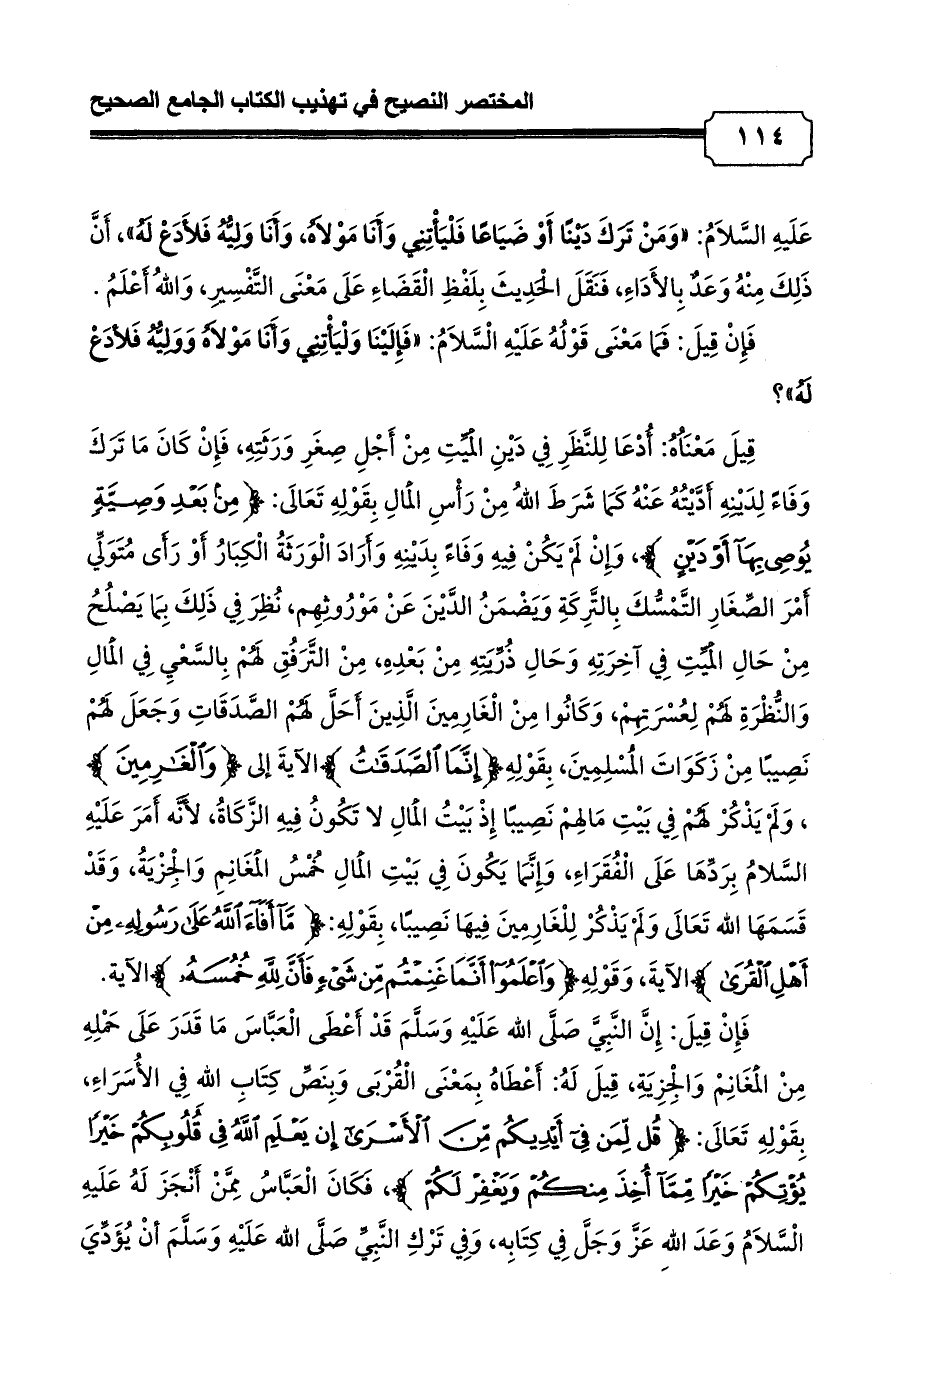 المختصر النصيح في تهذيب الكتاب الجامع الصحيح
١١٤
عَلَيهِ السَّلاَمُ: «وَمَنْ تَرَكَ دَيْنًا أَوْ ضَيَاعًا فَلْيَأْتِنِي وَأَنَا مَوْلاَهُ، وَأَنَا وَلِيُّهُ فَلأَدَعْ لَهُ»، أَنَّ
ذَلِكَ مِنْهُ وَعَدٌ بِالأَدَاءِ، فَنَقَلَ الْحَدِيثَ بِلَفْظِ الْقَضَاءِ عَلَى مَعْنَى التَّفْسِيرِ، وَاللهُ أَعْلَمُ .
فَإِنْ قِيلَ: فَمَا مَعْنَى قَوْلُهُ عَلَيهِ الْسَّلاَمُ: «فَإِلَيْنَا وَلْيَأْتِنِي وَأَنَا مَوْلاَهُ وَوَلِيُّهُ فَلأدَعْ
لَهُ»؟
قِيلَ مَعْنَاُهُ: أُدْعَا لِلنَّظَرِ فِي دَيْنِ الْمَيِّتِ مِنْ أَجْلِ صِغَرِ وَرَثَتِهِ، فَإِنْ كَانَ مَا تَرَكَ
وَفَاءً لِدَيْنِهِ أَدَّيْتُهُ عَنْهُ كَمَا شَرَطَ اللهُ مِنْ رَأْسِ الْمَالِ بِقَوْلِهِ تَعَالَى: ﴿ مِنۢ بَعْدِ وَصِيَّةٍ
يُوصِى بِهَآ أَوْ دَيْنٍ ﴾، وَإِنْ لَمْ يَكُنْ فِيهِ وَفَاءً بِدَيْنِهِ وَأَرَادَ الْوَرَثَةُ الْكِبَارُ أَوْ رَأَى مُتَوَلِّي
أَمْرَ الصِّغَارِ التَّمْسُّكَ بِالتَّرِكَةِ وَيَضْمَنُ الدَّيْنَ عَنْ مَوْرُوثِهِم، نُظِرَ فِي ذَلِكَ بِمَا يَصْلُحُ
مِنْ حَالِ الْمَيِّتِ فِي آخِرَتِهِ وَحَالِ ذُرِّيَتِهِ مِنْ بَعْدِهِ، مِنْ التَّرَفُّقِ لَهُمْ بِالسَّعْيِ فِي الْمَالِ
وَالنُّظْرَةِ لَهُمْ لِعُسْرَتِهِمْ، وَكَانُوا مِنْ الْغَارِمِينَ الَّذِينَ أَحَلَّ لَهُمْ الصَّدَقَاتِ وَجَعَلَ لَهُمْ
نَصِيبًا مِنْ زَكَوَاتَ الْمُسْلِمِينَ، بِقَوْلِهِ﴿ إِنَّمَا ٱلصَّدَقَٰتُ ﴾الآيةَ إلى ﴿ وَٱلْغَٰرِمِينَ ﴾
، وَلَمْ يَذْكُرْ لَهُمْ فِي بَيْتِ مَالِهِمْ نَصِيبًا إِذْ بَيْتُ الْمَالِ لا تَكُونُ فِيهِ الزَّكَاةُ، لأَنَّه أَمَرَ عَلَيْهِ
السَّلامُ بِرَدِّهَا عَلَى الْفُقَرَاءِ، وَإِنَّمَا يَكُونَ فِي بَيْتِ الْمَالِ خُمْسُ الْمَغَانِمِ وَالْجِزْيَةُ، وَقَدْ
قَسَمَهَا الله تَعَالَى وَلَمْ يَذْكُرْ لِلْغَارِمِينَ فِيهَا نَصِيبًا، بِقَوْلِهِ:﴿ مَّآ أَفَآءَ ٱللَّهُ عَلَىٰ رَسُولِهِۦ مِنْ
أَهْلِ ٱلْقُرَىٰ ﴾الآيةَ، وَقَوْلِهِ﴿ وَٱعْلَمُوٓا۟ أَنَّمَا غَنِمْتُم مِّن شَىْءٍ فَأَنَّ لِلَّهِ خُمُسَهُۥ ﴾الآية.
فَإِنْ قِيلَ: إِنَّ النَّبِيَّ صَلَّى الله عَلَيْهِ وَسَلَّمَ قَدْ أَعْطَى الْعَبَّاسَ مَا قَدَرَ عَلَى حَمْلِهِ
مِنْ الْمَغَانِمِ وَالْجِزِيَةِ، قِيلَ لَهُ: أَعْطَاهُ بِمَعْنَى الْقُرْبَى وَبِنَصِّ كِتَابِ الله فِي الأُسَرَاءِ،
بِقَوْلِهِ تَعَالَى: ﴿ قُل لِّمَن فِىٓ أَيْدِيكُم مِّنَ ٱلْأَسْرَىٰٓ إِن يَعْلَمِ ٱللَّهُ فِى قُلُوبِكُمْ خَيْرًا
يُؤْتِكُمْ خَيْرًا مِّمَّآ أُخِذَ مِنكُمْ وَيَغْفِرْ لَكُمْ ﴾، فَكَانَ الْعَبَّاسُ مِمَّنْ أَنْجَزَ لَهُ عَلَيهِ
السَّلاَمُ وَعَدَ اللهِ عَزَّ وَجَلَّ فِي كِتَابِه، وَفِي تَرْكِ النَّبِيِّ صَلَّى الله عَلَيْهِ وَسَلَّمَ أَنْ يُؤَدِّيَ